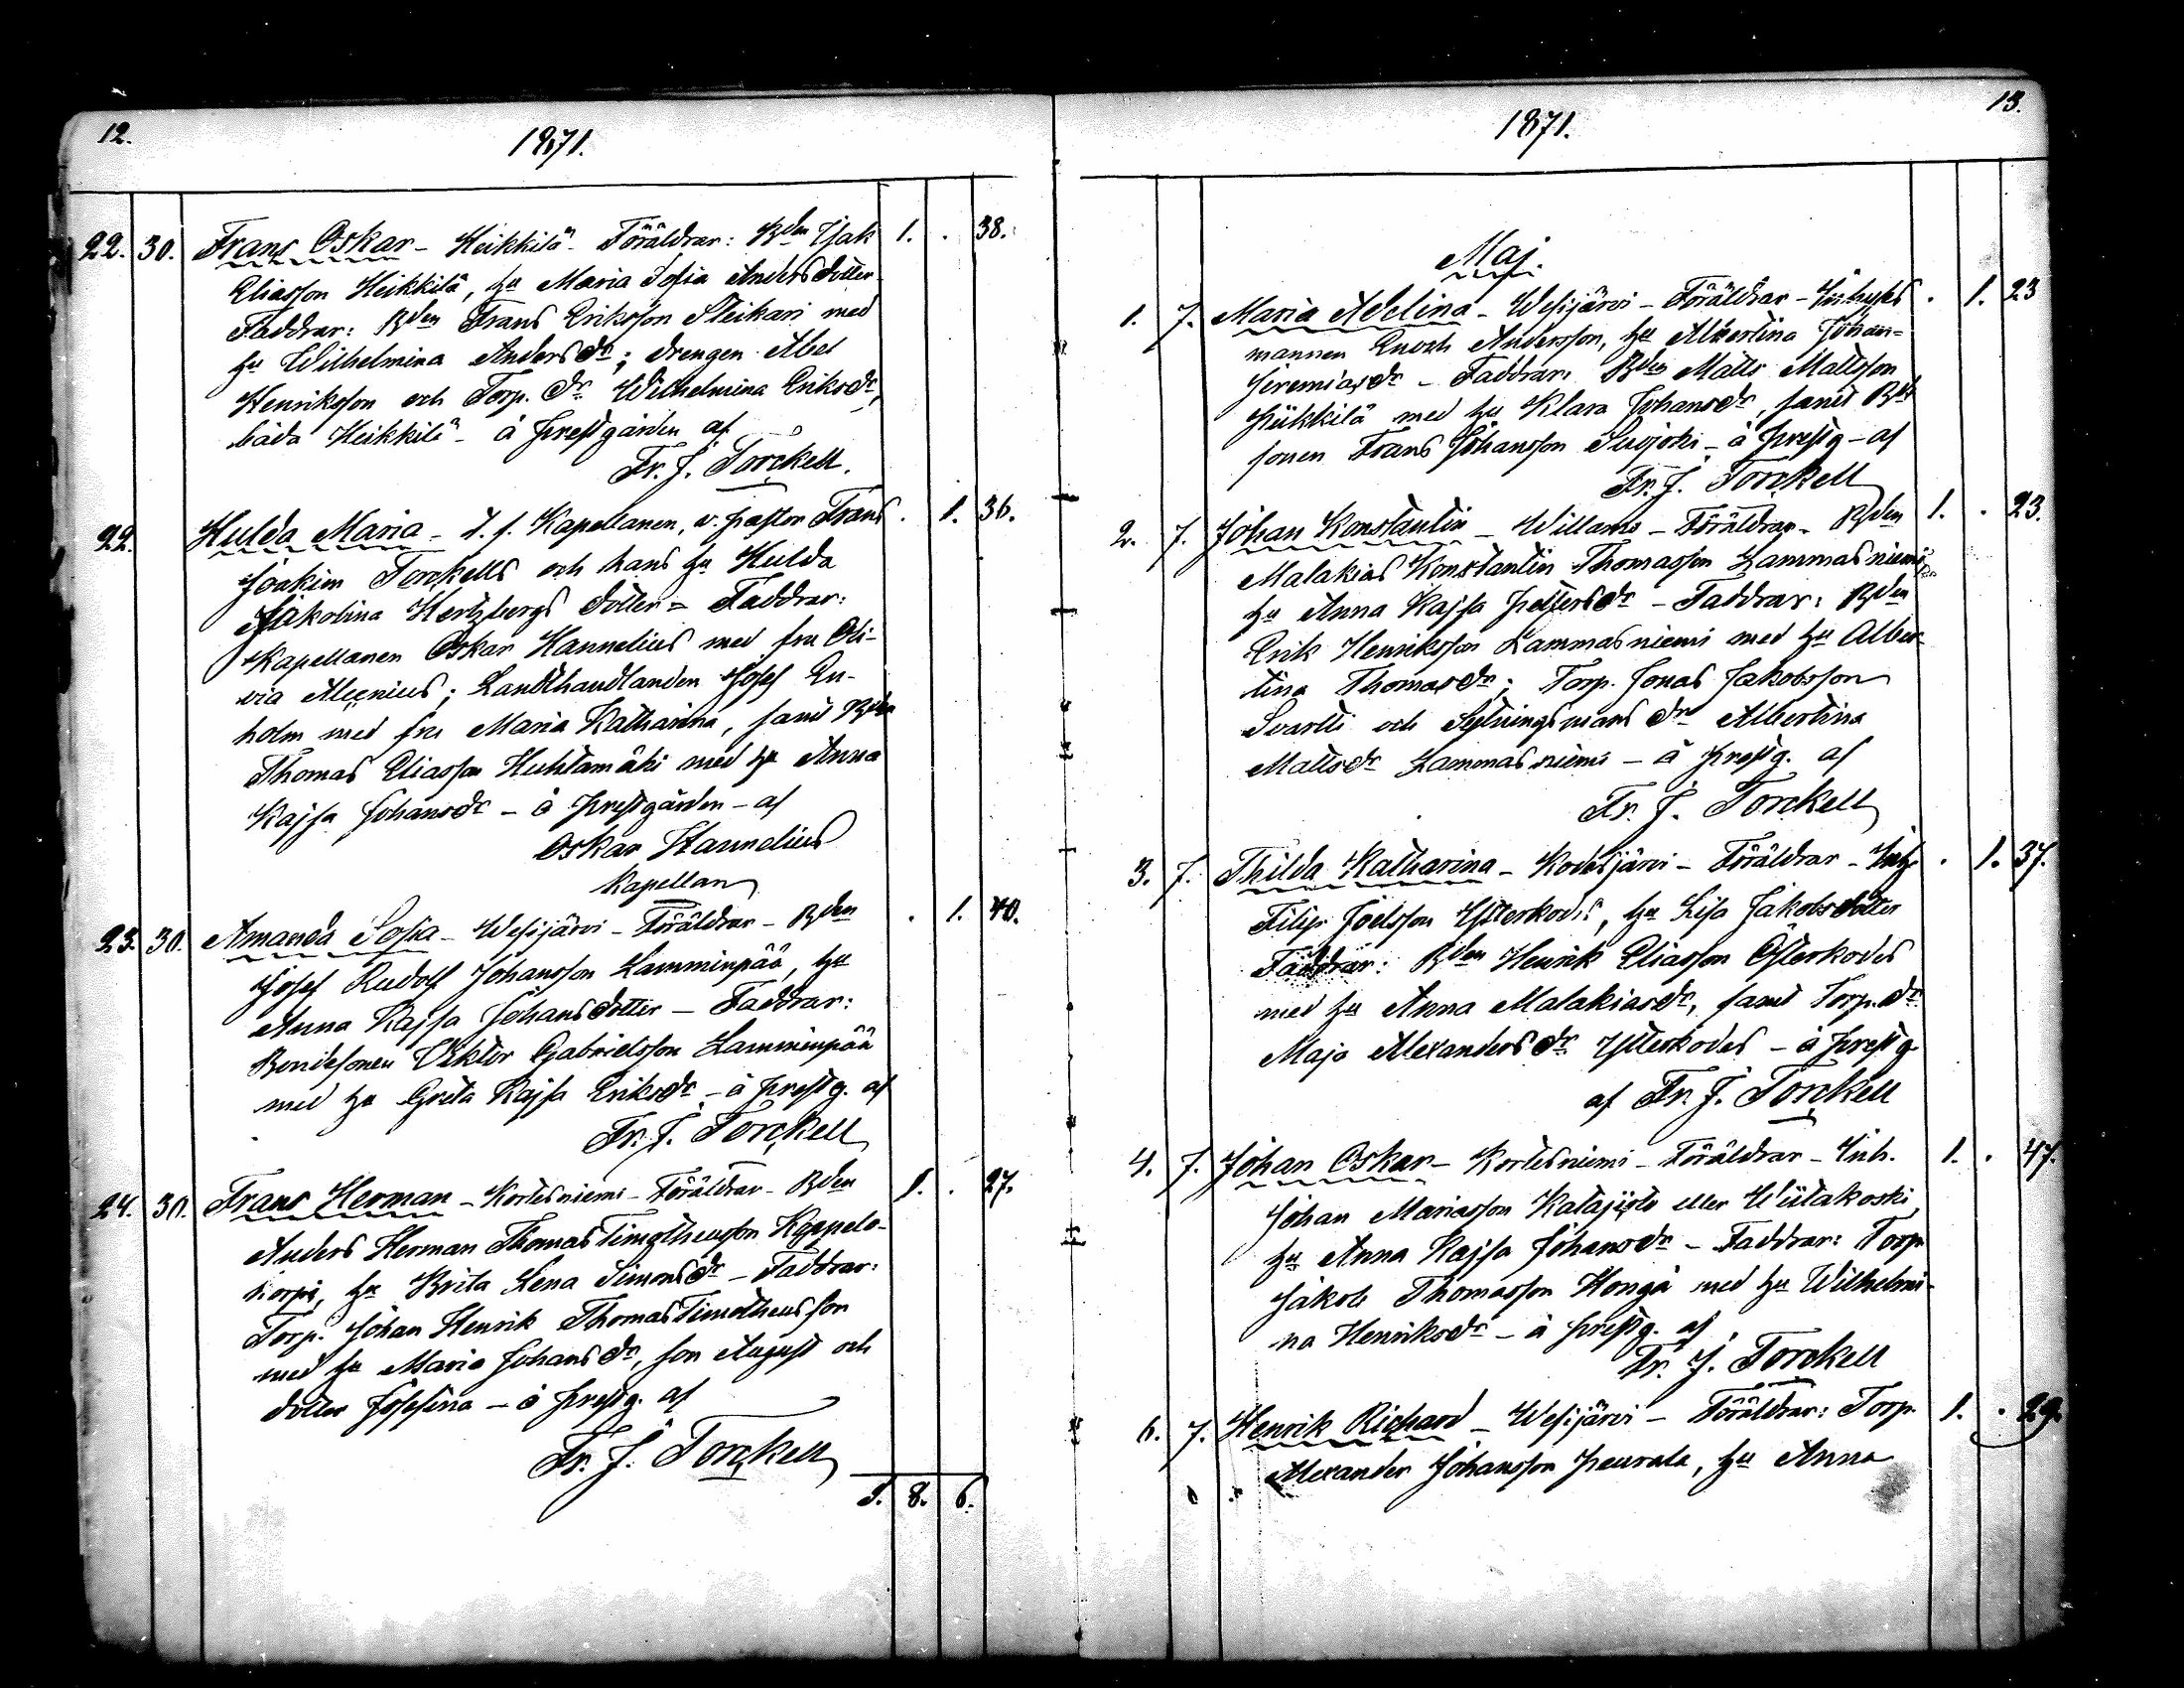 12.
1871.
22. 30. Frans Oskar - Heikkilä - Föräldrar: Bden Isak 1. . 38.
Eliasson Heikkilä, hu Maria Sofia Andersdotter
Faddrar: Bden Frans Eriksson Steikari med
hu Wilhelmina Andersdr; drengen Abel
Henriksson och Torp. dr Wilhelmina Eriksdr,
båda Heikkilä - å prestgården af
Fr. J. Torckell.
22. Hulda Maria - d. f. Kapellanen, v. pastor Frans . 1. 36.
Joakim Torckells och hans hu Hulda
Jakolina Hertzbergs dotter = Faddrar:
Kapellanen Oskar Hannelius med fru Oli-
via Alcenius; Landthandlanden Josef En-
holm med fru Maria Katharina, samt Bden
Thomas Eliasson Huhtamäki med hu Anna
Kajsa Johansdr - å prestgården - af
Oskar Hannelius
Kapellan
23. 30. Amanda Sofia - Wesijärvi - Föräldrar - Bden . 1. 40.
Josef Rudolf Johansson Lamminpää, hu
Anna Kajsa Johansdotter - Faddrar:
Bondesonen Viktor Gabrielsson Lamminpää
med hu Greta Kajsa Eriksdr - å prestg. af
Fr. J. Torckell
24. 30. Frans Herman - Kortesniemi - Föräldrar - Bden 1. . 27.
Anders Herman Thomas Timotheusson Kappelo-
korpi, hu Brita Lena Simonsdr - Faddrar:
Torp. Johan Henrik Thomas Timotheusson
med hu Maria Johansdr, son August och
dotter Josefina - å prestg. af
Fr. J. Torckell
8. 6.
13.
1871.
Maj.
1. 7. Maria Adelina - Wesijärvi - Föräldrar - Inhyses . 1. 23
mannen Enoch Andersson, hu Albertina Johan=
Jeremiasdr - Faddrar: Bden Matts Mattsson
med hu Klara Johansdr, samt Bde
sonen Frans Johansson Suojoki - å prestg - af
Fr. J. Torckell
2. 7. Johan Konstantin - Willamo - Föräldrar - Bden 1. . 23.
Malakias Konstantin Thomasson Lammasniemi,
hu Anna Kajsa Pettersdr - Faddrar: Bden
Erik Henriksson Lammasniemi med hu Alber-
tina Thomasdr; Torp. Jonas Jakobsson
Svartti och Sytningsmans dr Albertina
Mattsdr Lammasniemi - å prestg. af
Fr. J. Torckell
3. 7. Thilda Katharina - Kodesjärvi - Föräldrar - Inh. . 1. 37.
Filip Joelsson Ytterkodes, hu Lisa Jakobsdotter
Faddrar: Bden Henrik Eliasson Österkodes
med hu Anna Malakiasdr, samt Torp. dr
Maja Alexandersdr Ytterkodes - å prestg
af Fr. J. Torckell
4. 7. Johan Oskar - Kortesniemi - Föräldrar - Inh. 1. . 47.
Johan Mariasson Katajisto eller Wiitakoski,
hu Anna Kajsa Johansdr - Faddrar: Torp.
Jakob Thomasson Honga med hu Wilhelmi-
na Henriksdr - å prestg. af
Fr. J. Torckell
6. 7. Henrik Richard - Wesijärvi - Föräldrar: Torp. 1. . 29.
Alexander Johansson Peurala, hu Anna